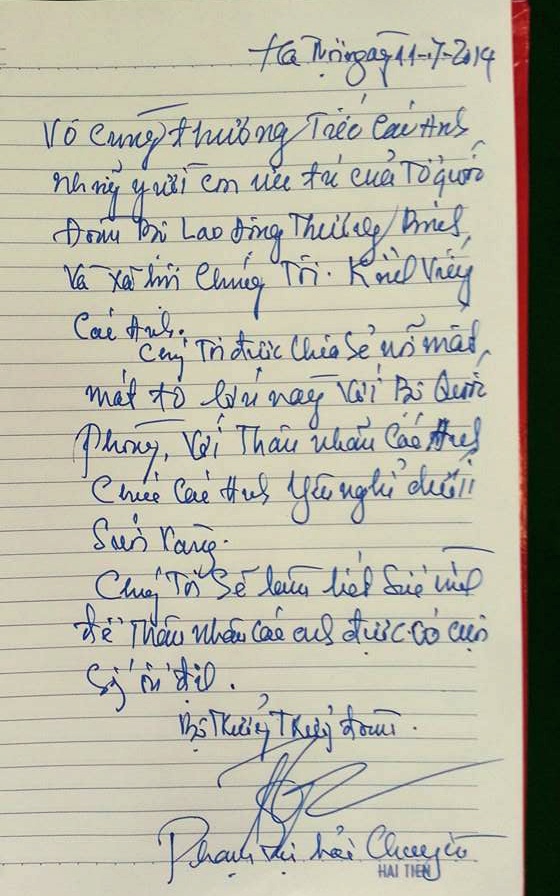 Hà Nội ngày 11-7-2014
Vô cùng thương Tiếc Các Anh
những người con ưu tú của Tổ quốc
Đoàn Bộ Lao động Thương Binh
Và Xã hội Chúng Tôi. Kính Viếng
Các Anh.
Chúng Tôi được Chia Sẻ nỗi mất
mát to lớn này Với Bộ Quốc
phòng, Với Thân nhân Các Anh
Chúc Các Anh Yên nghỉ dưới
Suối Vàng.
Chúng Tôi Sẽ làm hết Sức mình
để Thân nhân Các anh được có cuộc
Sống ổn định.
Bộ Trưởng Trưởng đoàn.
Phạm Thị Hải Chuyền
HẢI TIẾN